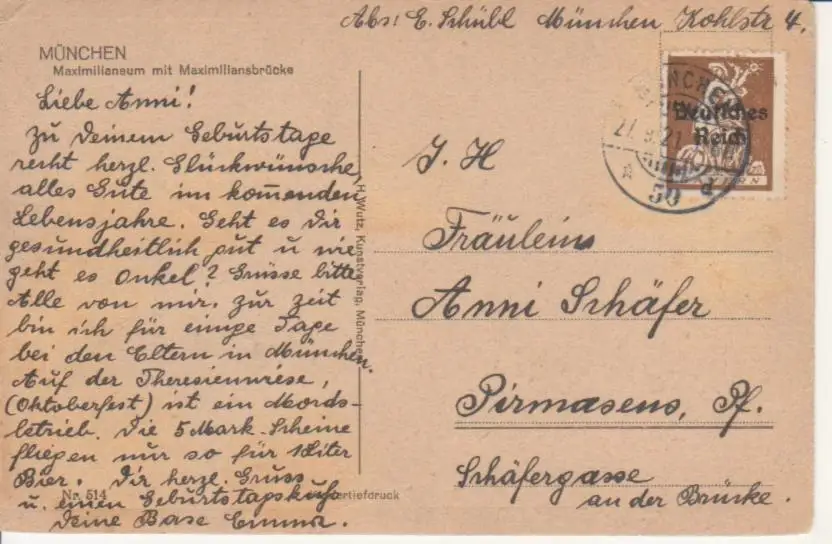 Abs: E. Schübl München Kohlstr 4.
MÜNCHEN
Maximilianeum mit Maximiliansbrücke
Liebe Anni!
Zu Deinem Geburtstage
recht herzl. Glückwünsche,
alles Gute im kommenden
Lebensjahre. Geht es Dir
gesundheitlich gut u wie
geht es Onkel? Grüsse bitte
Alle von mir. Zur Zeit
bin ich für einige Tage
bei den Eltern in München.
Auf der Theresienwiese,
(Oktoberfest) ist ein Mords-
betrieb. Die 5 Mark-Scheine
fliegen nur so für 1 Liter
Bier. Dir herzl. Gruss
u. einen Geburtstagskuß
Deine Base Emma.
Nr. 514
tertiefdruck
H. Wutz, Kunstverlag, München.
MÜNCHEN
27. 9. 21
* 50 d
Deutsches
Reich
40
I. H
Fräulein
Anni Schäfer
Pirmasens, Pf.
Schäfergasse
an der Brücke.